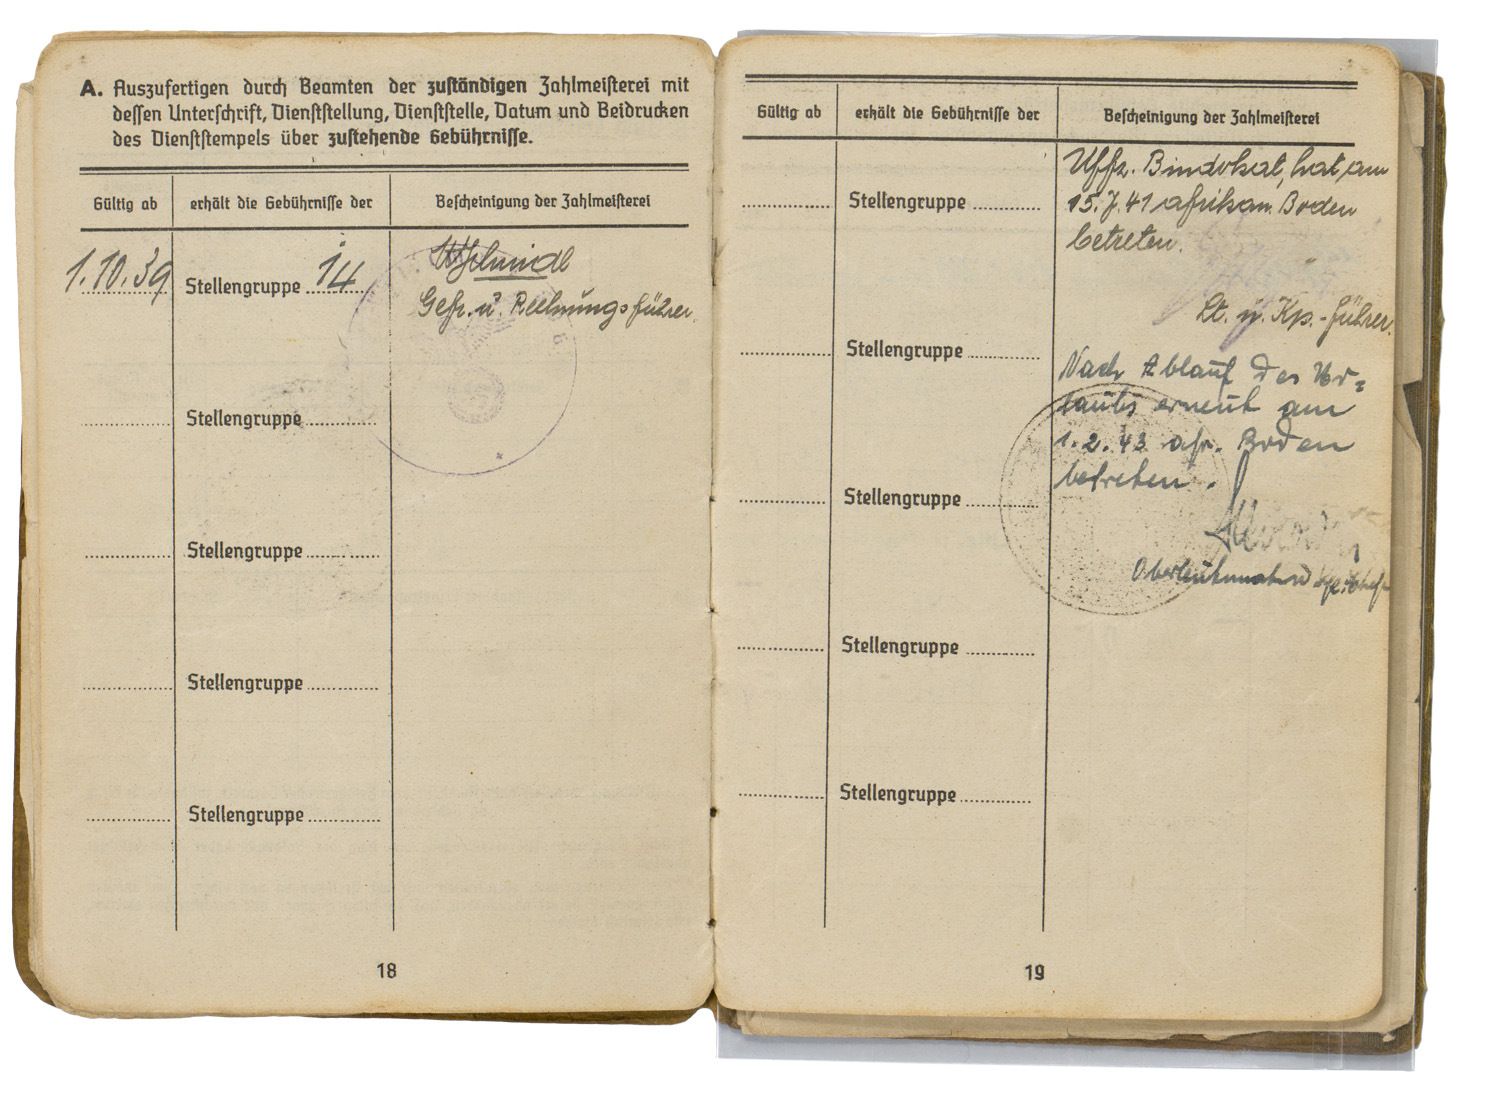 A. Auszufertigen durch Beamten der zuständigen Zahlmeisterei mit
dessen Unterschrift, Dienststellung, Dienststelle, Datum und Beidrucken
des Dienststempels über zustehende Gebührnisse.
Gültig ab erhält die Gebührnisse der Bescheinigung der Zahlmeisterei
1.10.39 Stellengruppe 14 Schmidl
Gefr. u. Rechnungsführer
Stellengruppe
Stellengruppe
Stellengruppe
Stellengruppe
18
Gültig ab erhält die Gebührnisse der Bescheinigung der Zahlmeisterei
Uffz. Bindokat, hat am
Stellengruppe 15.7.41 afrikan. Boden
betreten.
Lt. u. Kp.-Führer.
Stellengruppe
Nach Ablauf des Ur=
laubs erneut am
1.2.43 afr. Boden
Stellengruppe betreten.
Oberleutnant u. Kp. Chef
Stellengruppe
Stellengruppe
19